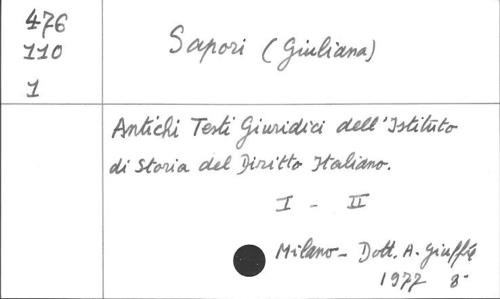 476
110
1
Sapori (Giuliana)
Antichi Testi Giuridici dell'Istituto
di Storia del Diritto Italiano.
I - II
Milano - Dott. A. Giuffrè
1977 8°